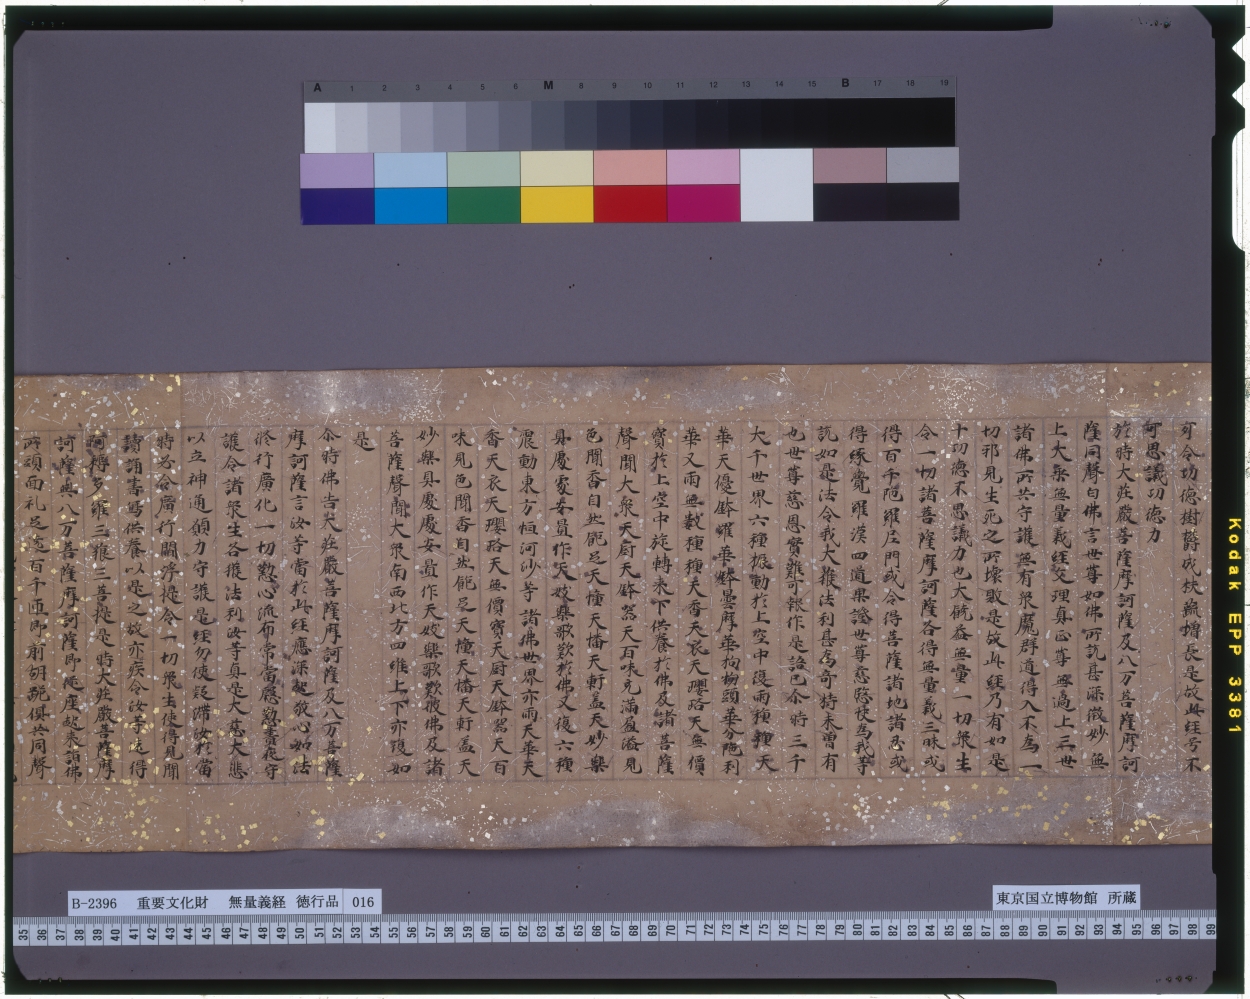 A 1 2 3 4 5 6 M 8 9 10 11 12 13 14 15 B 17 18 19
可思議功德力
於時大莊嚴菩薩摩訶薩及八万菩薩摩訶
薩同聲白佛言世尊如佛所說甚深微妙無
上大乘無量義經文理真正尊無過上三世
諸佛所共守護無有衆魔群道得入不為一
切邪見生死之所壞敗是故此經乃有如是
十功德不思議力也大饒益無量一切衆生
令一切諸菩薩摩訶薩各得無量義三昧或
得百千陁羅尼門或令得菩薩諸地諸忍或
得緣覺羅漢四道果證世尊慈愍快為我等
說如是法令我大獲法利甚為奇特未曾有
也世尊慈恩實難可報作是語已尒時三千
大千世界六種振動於上空中復雨種種天
華天優鉢羅華鉢曇摩華拘物頭華分陁利
華又雨無數種種天香天衣天瓔珞天無價
寳於上空中旋轉来下供養於佛及諸菩薩
聲聞大衆天厨天鉢器天百味充滿盈溢見
色聞香自然飽足天幢天幡天軒蓋天妙樂
具處處安置作天妓樂歌歎於佛又復六種
震動東方恒河沙等諸佛世界亦雨天華天
香天衣天瓔珞天無價寳天厨天鉢器天百
味見色聞香自然飽足天幢天幡天軒蓋天
妙樂具處處安置作天妓樂歌歎彼佛及諸
菩薩聲聞大衆南西北方四維上下亦復如
是
尒時佛告大莊嚴菩薩摩訶薩及八万菩薩
摩訶薩言汝等當於此經應深起敬心如法
修行廣化一切懃心流布常當慇懃晝夜守
護令諸衆生各獲法利汝等真是大慈大悲
以立神通願力守護是經勿使疑滯汝於當
時必令廣行閻浮提令一切衆生使得見聞
讀誦書寫供養以是之故亦疾令汝等速得
阿耨多羅三藐三菩提是時大莊嚴菩薩摩
訶薩與八万菩薩摩訶薩即従座起来詣佛
所頭面礼足遶百千匝即前胡跪俱共同聲
B-2396 重要文化財 無量義経 徳行品 016
東京国立博物館 所蔵
35 36 37 38 39 40 41 42 43 44 45 46 47 48 49 50 51 52 53 54 55 56 57 58 59 60 61 62 63 64 65 66 67 68 69 70 71 72 73 74 75 76 77 78 79 80 81 82 83 84 85 86 87 88 89 90 91 92 93 94 95 96 97 98 99
Kodak EPP 3381